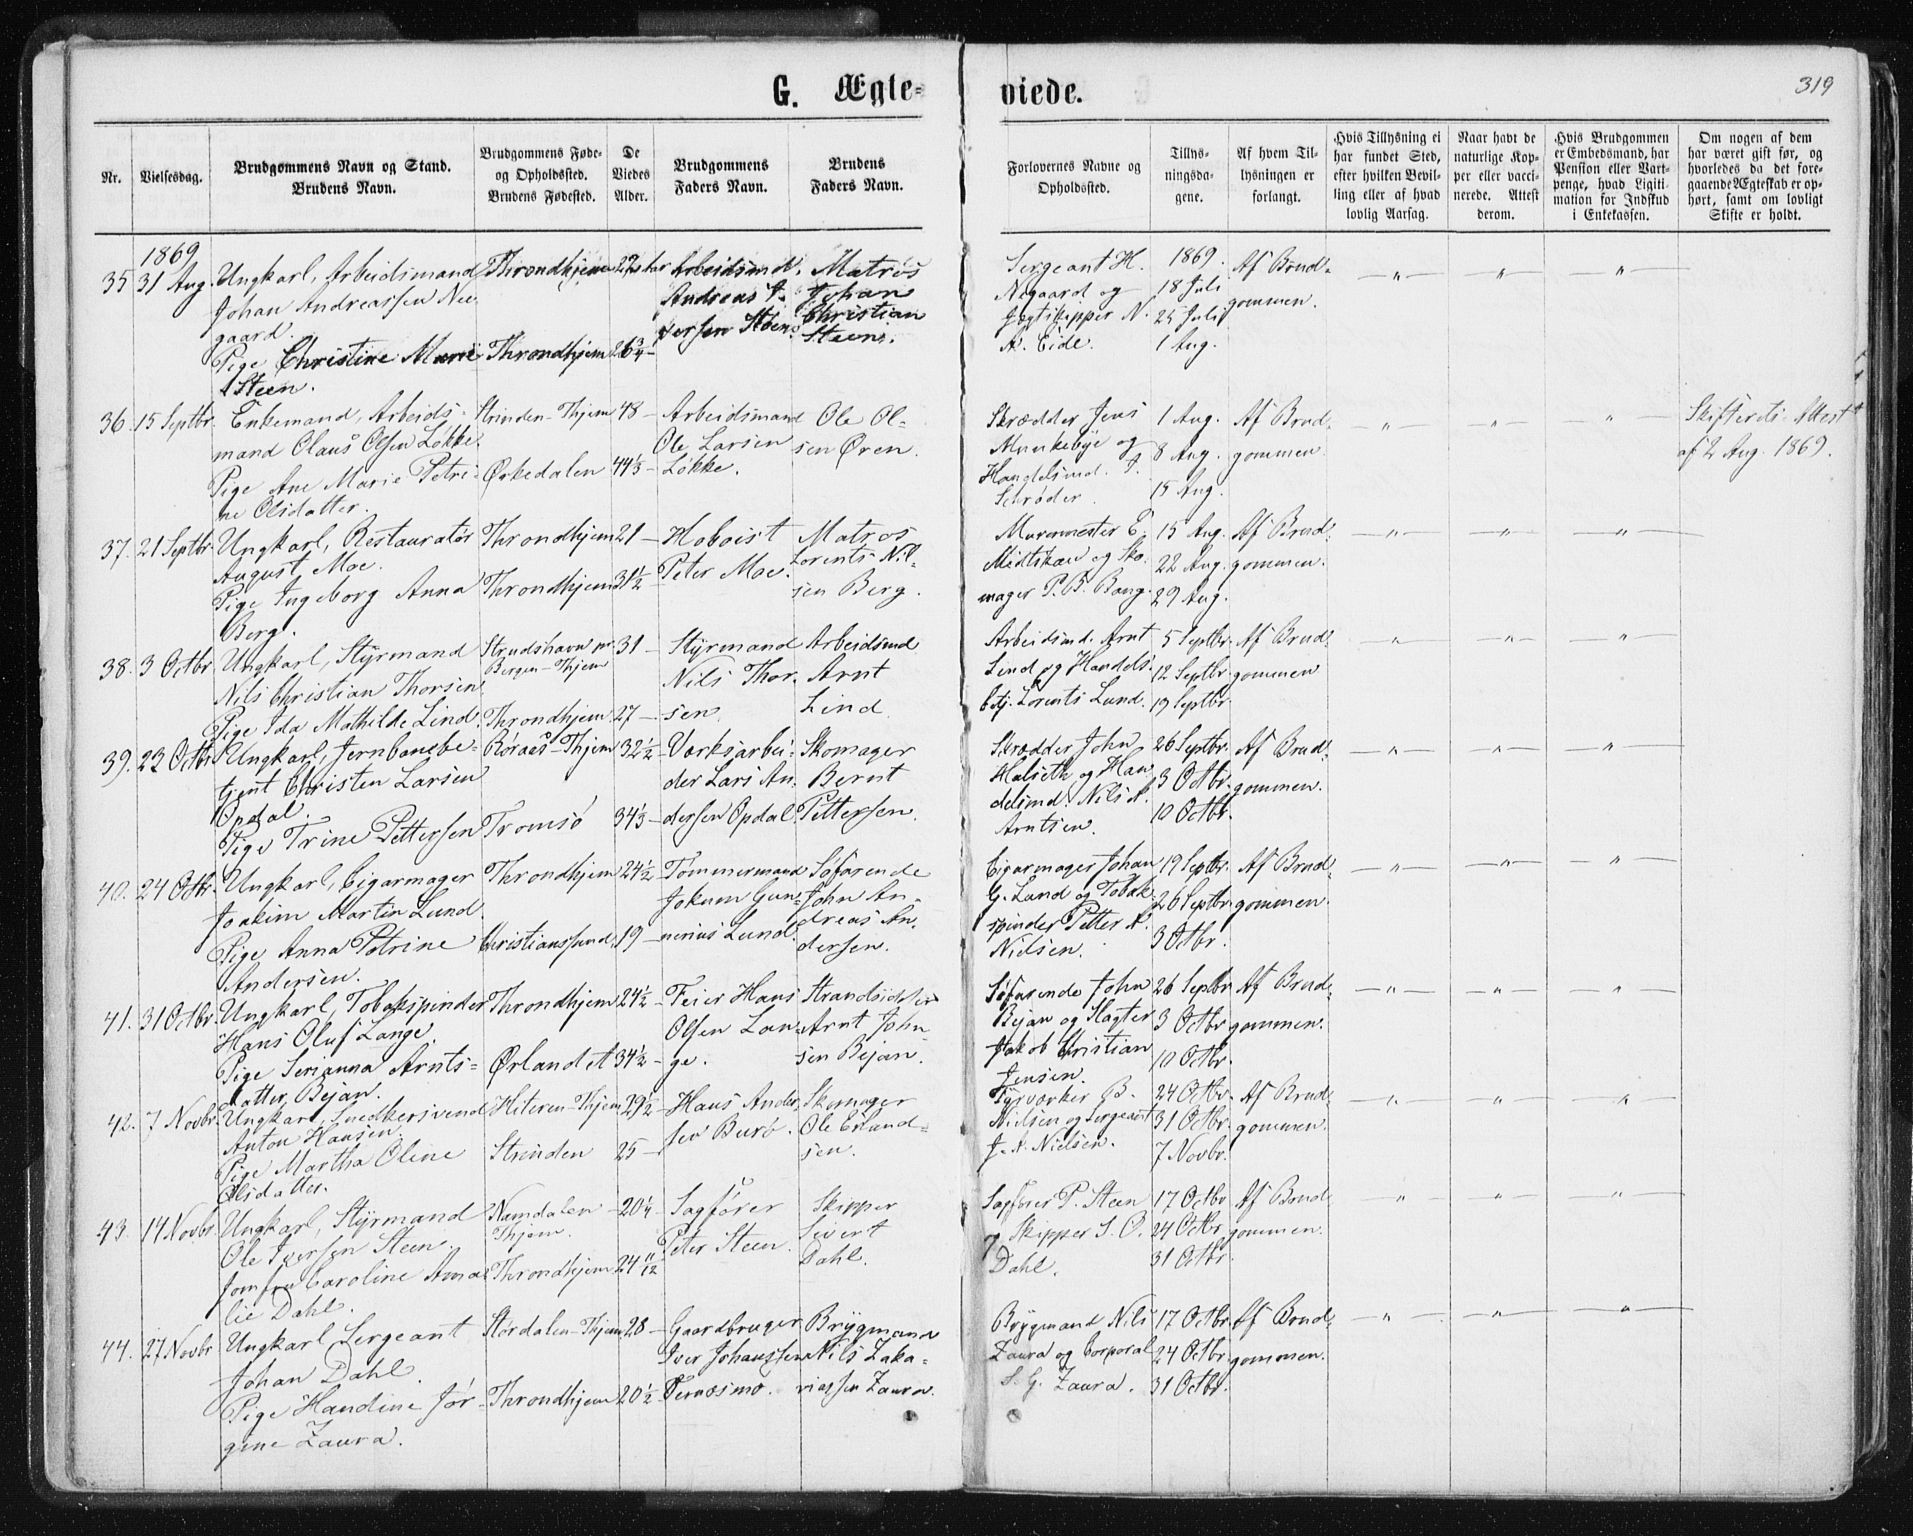 G. Ægte-
viede.
319
Nr.
Vielsesdag.
Brudgommens Navn og Stand.
Brudens Navn.
Brudgommens Føde-
og Opholdssted.
Brudens Fødested.
De
Viedes
Alder.
Brudgommens
Faders Navn.
Brudens
Faders Navn.
Forlovernes Navne og
Opholdssted.
Tillys-
ningsda-
gene.
Af hvem Til-
lysningen er
forlangt.
Hvis Tillysning ei
har fundet Sted,
efter hvilken Bevil-
ling eller af hvad
lovlig Aarsag.
Naar havt de
naturlige Kop-
per eller vacci-
nerede. Attest
derom.
Hvis Brudgommen
er Embedsmand, har
Pension eller Vart-
penge, hvad Ligiti-
mation for Indskud
i Enkekassen.
Om nogen af dem
har været gift før, og
hvorledes da det fore-
gaaende Ægteskab er op-
hørt, samt om lovligt
Skifte er holdt.
1869
35 31 Aug.
Ungkarl, Arbeidsmand
Johan Andreassen Nee
gaard.
Pige Christine Marie
Steen.
Throndhjem
Throndhjem
26 3/4 -
Arbeidsmd.
Andreas
Iversen
Matrós
Johan
Christian
Steen.
Sergeant H.
Negaard og
Jægtskipper N.
A. Eide.
1869.
18 Juli
25 Juli
1 Aug.
Af Brud-
gommen.
- " - " "
36. 15 Septbr.
Enkemand, Arbeids-
mand Olaus Olsen Løkke
Pige Ane Marie Petri-
ne Olsdatter.
Strinden - Thjem
Ørkedalen
48 -
44 1/3 -
Arbeidsmand
Ole Larsen
Løkke.
Ole Ol-
sen Øren.
Skrædder Jens
Munkebye og
Handelsmd. J.
Schrøder.
1 Aug.
8 Aug.
15 Aug.
Af Brud-
gommen
- " - " - " -
Skifterets Attest
af 2 Aug. 1869.
37. 21 Septbr.
Ungkarl, Restauratør
August Moe.
Pige Ingeborg Anna
Berg.
Throndhjem
Throndhjem
21 -
31 1/2
Hoboist
Peter Moe.
Matros
Lorents Nil-
sen Berg.
Murermester E.
Midtskau og Sko-
mager P. B. Bang.
15 Aug.
22 Aug.
29 Aug.
Af Brud-
gommen.
- " - " - " -
38. 3 Octbr.
Ungkarl, Styrmand
Nils Christian Thorsen
Pige Ida Mathilde Lind.
Strudshavn pr
Bergen - Thjem
Throndhjem
31 -
27 -
Styrmand
Nils Thor-
sen.
Arbeidsmd
Arnt
Lind
Arbeidsmd. Arnt
Lind og Handels-
betj. Lorents Lund.
5 Septbr.
12 Septbr.
19 Septbr.
Af Brud-
gommen
- " - " - " -
39. 23 Octbr.
Ungkarl, Jernbanebe-
tjent Christen Larsen
Opdal.
Pige Trine Pettersen
Röraas - Thjem
Tromsö
32 1/2 -
34 1/3 -
Værksarbei-
der Lars An-
dersen Opdal.
Skomager
Bernt
Pettersen.
Skrædder John
Halseth og Han-
delsmd. Nils A.
Arntsen.
26 Septbr.
3 Octbr.
10 Octbr.
Af Brud-
gommen.
- " - " - " -
40. 24 Octbr.
Ungkarl, Cigarmager
Joakim Martin Lund.
Pige Anna Petrine
Andersen.
Throndhjem
Christianssund.
24 1/2 -
19 -
Tømmermand
Jokum Gun-
nerius Lund.
Søfarende
John An-
dreas An-
dersen.
Cigarmager Johan
G. Lund og Tobak-
spinder Petter A.
Nielsen.
19 Septbr.
26 Septbr.
3 Octbr.
Af Brud-
gommen.
- " - " - "
41. 31 Octbr.
Ungkarl, Tobakspinder
Hans Oluf Lange.
Pige Serianna Arnts-
datter Bejan.
Throndhjem
Ørlandet
24 1/2 -
34 1/2 -
Feier Hans
Olsen Lan-
ge.
Strandsidder
Arnt John-
sen Bejan.
Søfarende John
Bejan og Slagter
Jakob Christian
Jensen.
26 Septbr
3 Octbr
10 Octbr.
Af Brud-
gommen.
- " - " - " -
42. 7 Novbr.
Ungkarl, Snedkersvend
Anton Hansen.
Pige Martha Oline
Olsdatter.
Hiteren - Thjem
Strinden
29 1/2 -
25 -
Hans Ander-
sen Burö.
Skomager
Ole Erland-
sen.
Fyrvorker B.
Nielsen og Sergeant
J. A. Nielsen.
24 Octbr.
31 Octbr.
7 Novbr.
Af Brud-
gommen.
- " - " - " -
43. 14 Novbr.
Ungkarl, Styrmand
Ole Iversen Steen.
Jomfru Caroline Ama-
lie Dahl.
Namdalen
Thjem.
Throndhjem
20 1/4 -
24 11/12
Sagfører
Peter Steen.
Skipper
Sivert
Dahl.
Sagfører P. Steen
og Skipper S. O.
Dahl.
17 Octbr
24 Octbr
31 Octbr.
Af Brud-
gommen.
" - " - "
44. 27 Novbr
Ungkarl Sergeant
Johan Dahl.
Pige Handine Jör-
gine Zaura.
Stördalen - Thjem
Throndhjem
28 -
20 1/2 -
Gaardbruger
Iver Johanssen
Brygmand
Nils Zaka-
riassen Zaura.
Brygmand Nils
Zaura og Corporal
S. G. Zaura.
17 Octbr.
24 Octbr.
31 Octbr.
Af Brud-
gommen.
- " - " - " -